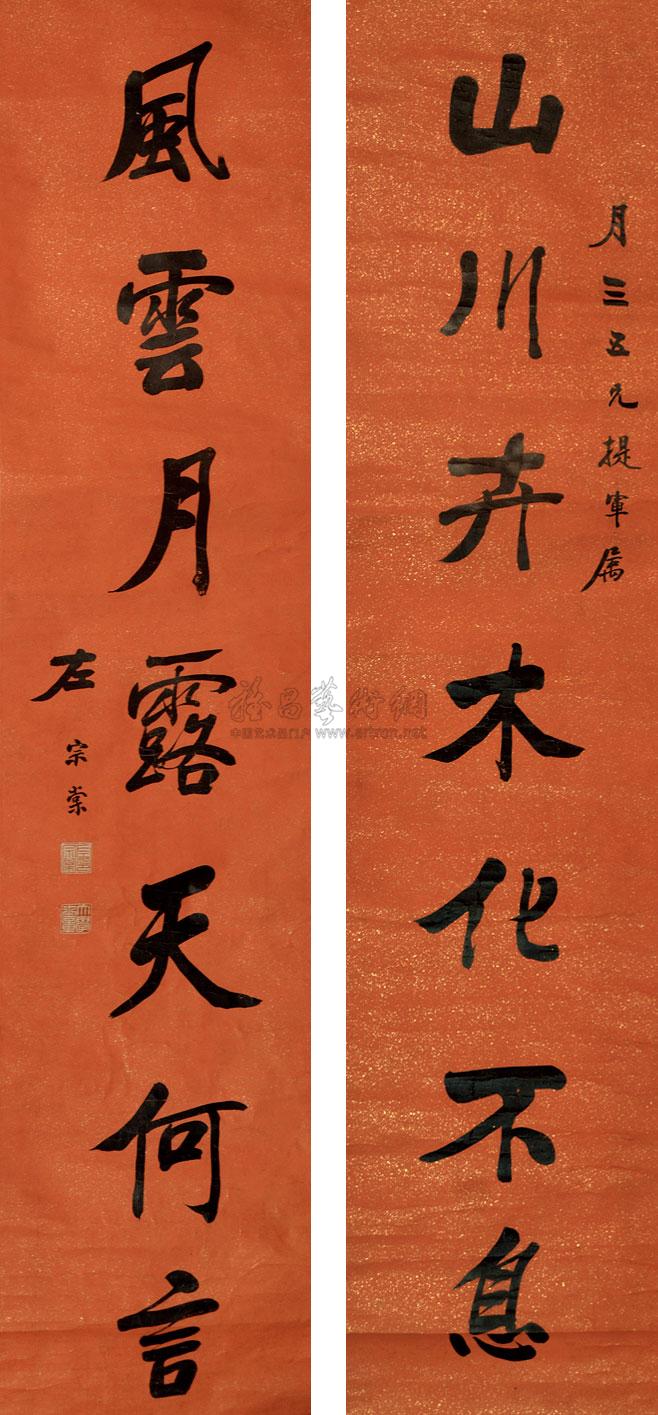 月三五兄提軍属
山川卉木化不息
風雲月露天何言
左宗棠
雅昌藝術網
中国艺术品门户 www.artron.net